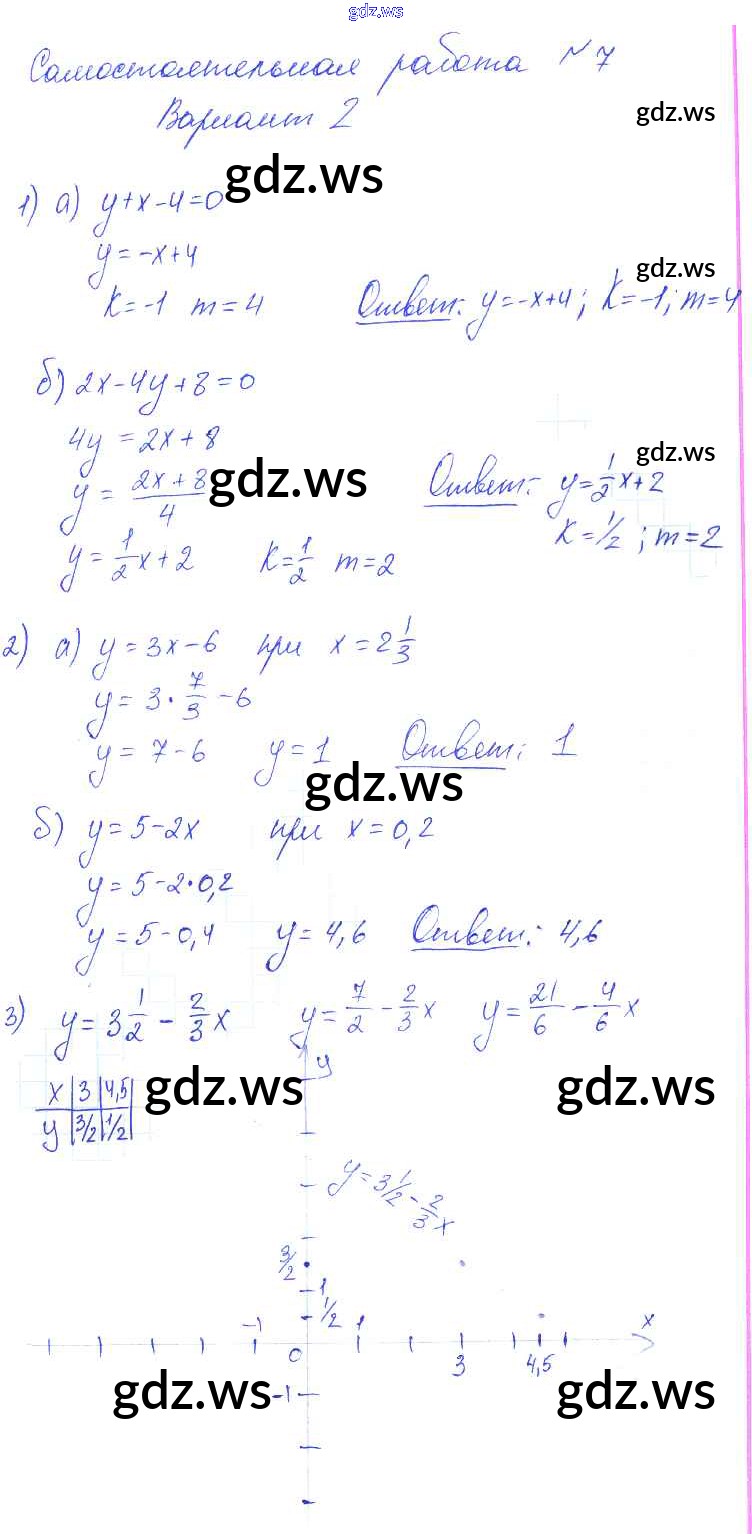 gdz.ws
Самостоятельная работа №7
Вариант 2
gdz.ws
gdz.ws
1) а) y+x-4=0
y=-x+4
gdz.ws
K=-1 m=4 Ответ: y=-x+4; K=-1; m=4
б) 2x-4y+8=0
4y=2x+8
gdz.ws
y= (2x+8)/4 gdz.ws Ответ: y=1/2x+2
K=1/2; m=2
y=1/2x+2 K=1/2 m=2
2) а) y=3x-6 при x=2 1/3
y=3·7/3-6
y=7-6 y=1 Ответ: 1
gdz.ws
б) y=5-2x при x=0,2
y=5-2·0,2
y=5-0,4 y=4,6 Ответ: 4,6
3) y=3 1/2 - 2/3x y=7/2-2/3x y=21/6-4/6x
y
x 3 4,5 gdz.ws gdz.ws
y 3/2 1/2
y=3 1/2-2/3x
3/2
1
1/2
-1 1 x
0 3 4,5
gdz.ws -1 gdz.ws